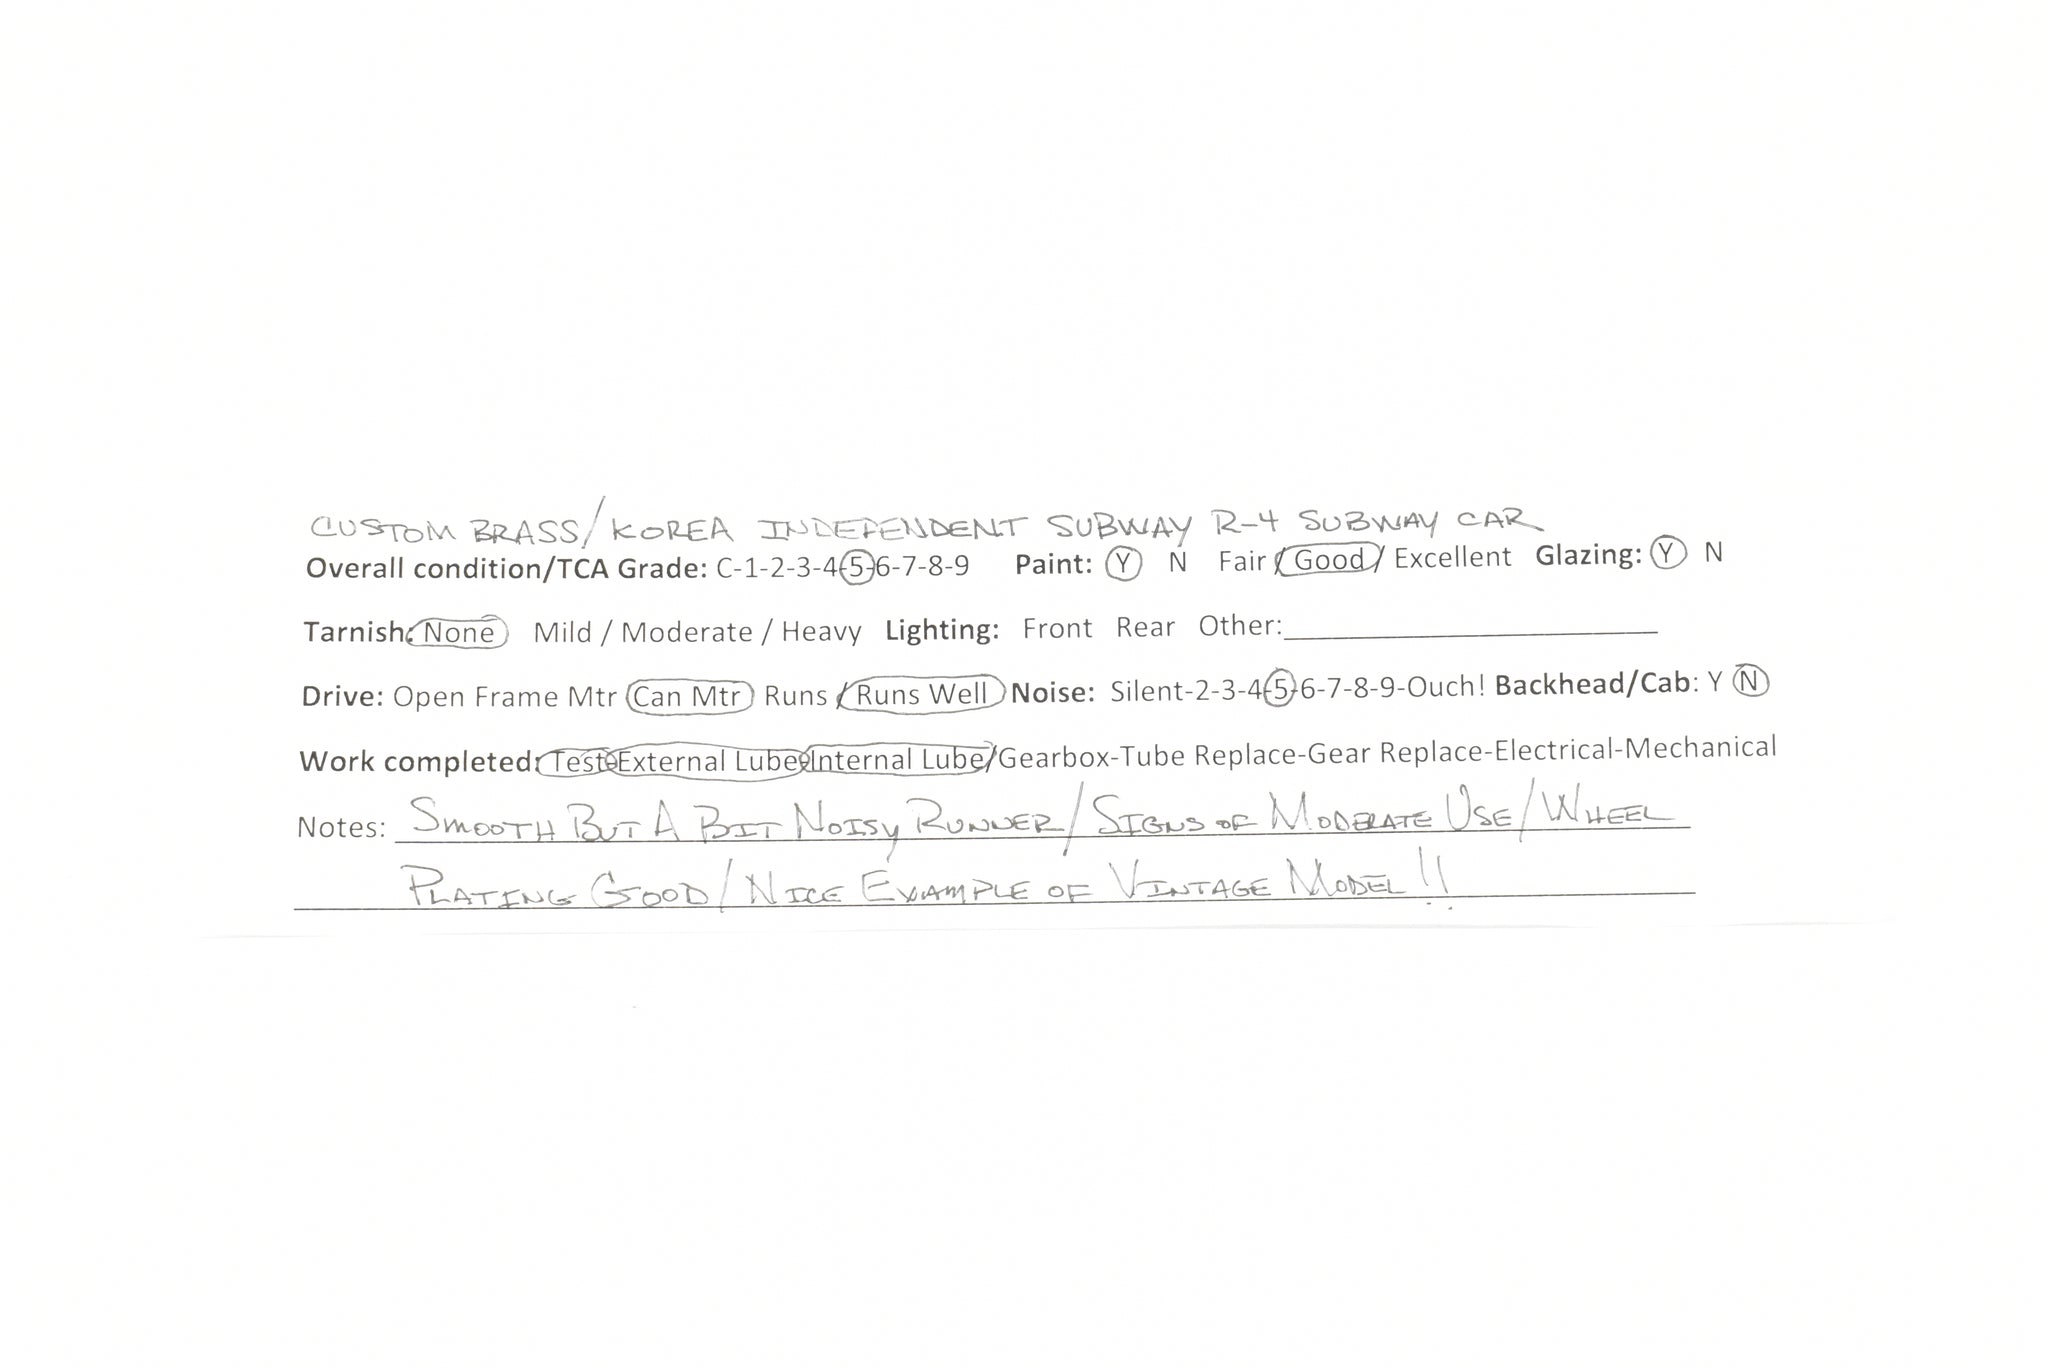 CUSTOM BRASS/KOREA INDEPENDENT SUBWAY R-4 SUBWAY CAR
Overall condition/TCA Grade: C-1-2-3-4-5-6-7-8-9 Paint: Y N Fair / Good / Excellent Glazing: Y N
Tarnish: None Mild / Moderate / Heavy Lighting: Front Rear Other:
Drive: Open Frame Mtr Can Mtr Runs / Runs Well Noise: Silent-2-3-4-5-6-7-8-9-Ouch! Backhead/Cab: Y N
Work completed: Test-External Lube-Internal Lube/Gearbox-Tube Replace-Gear Replace-Electrical-Mechanical
Notes: SMOOTH BUT A BIT NOISY RUNNER/SIGNS OF MODERATE USE/WHEEL
PLATING GOOD/NICE EXAMPLE OF VINTAGE MODEL!!